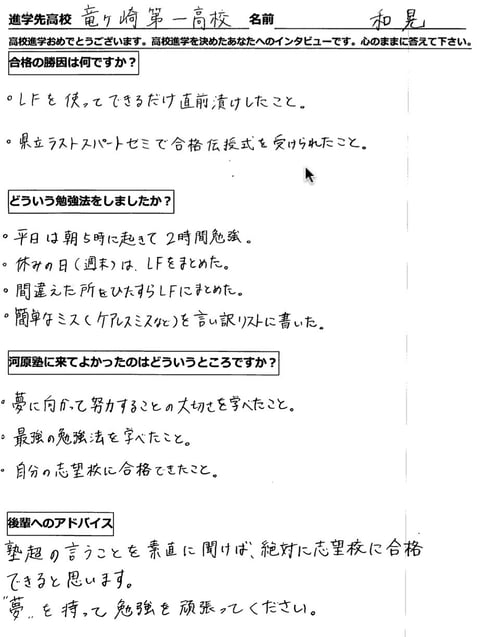 進学先高校 竜ヶ崎第一高校 名前 和晃
高校進学おめでとうございます。高校進学を決めたあなたへのインタビューです。心のままに答えて下さい。
合格の勝因は何ですか？
・LFを使ってできるだけ直前漬けしたこと。
・県立ラストスパートゼミで合格伝授式を受けられたこと。
どういう勉強法をしましたか？
・平日は朝5時に起きて2時間勉強。
・休みの日(週末)は、LFをまとめた。
・間違えた所をひたすらLFにまとめた。
・簡単なミス(ケアレスミスなど)を言い訳リストに書いた。
河原塾に来てよかったのはどういうところですか？
・夢に向かって努力することの大切さを学べたこと。
・最強の勉強法を学べたこと。
・自分の志望校に合格できたこと。
後輩へのアドバイス
塾超の言うことを素直に聞けば、絶対に志望校に合格
できると思います。
"夢"を持って勉強を頑張ってください。